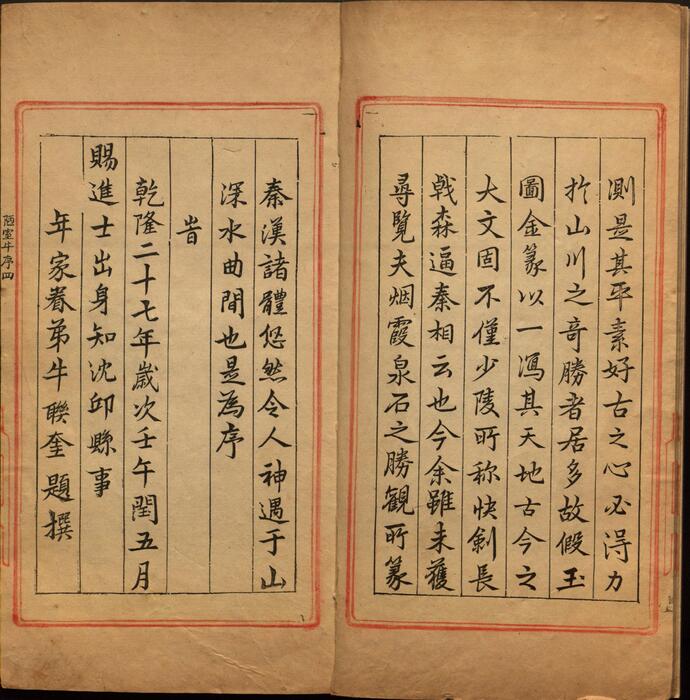 測是其平素好古之心必淂力
扵山川之竒勝者居多故假玉
圖金篆以一瀉其天地古今之
大文固不僅少陵所称快劍長
戟森逼秦相云也今余雖未獲
尋覽夫烟霞泉石之勝觀所篆
秦漢諸體悠然令人神遇于山
深水曲間也是為序
旹
乾隆二十七年歲次壬午閏五月
賜進士出身知沈邱縣事
年家眷弟牛聯奎題撰
牛序四